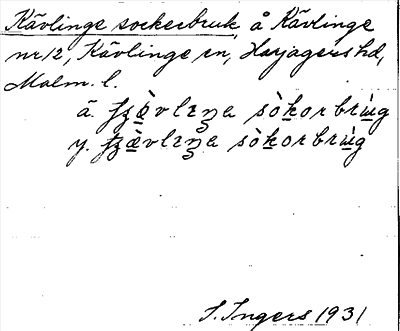 Kävlinge sockerbruk, å Kävlinge
nr 12, Kävlinge sn, Harjagers hd,
Malm. l.
ä. sòkorbrùg
y. sòkorbrùg
S. Ingers 1931